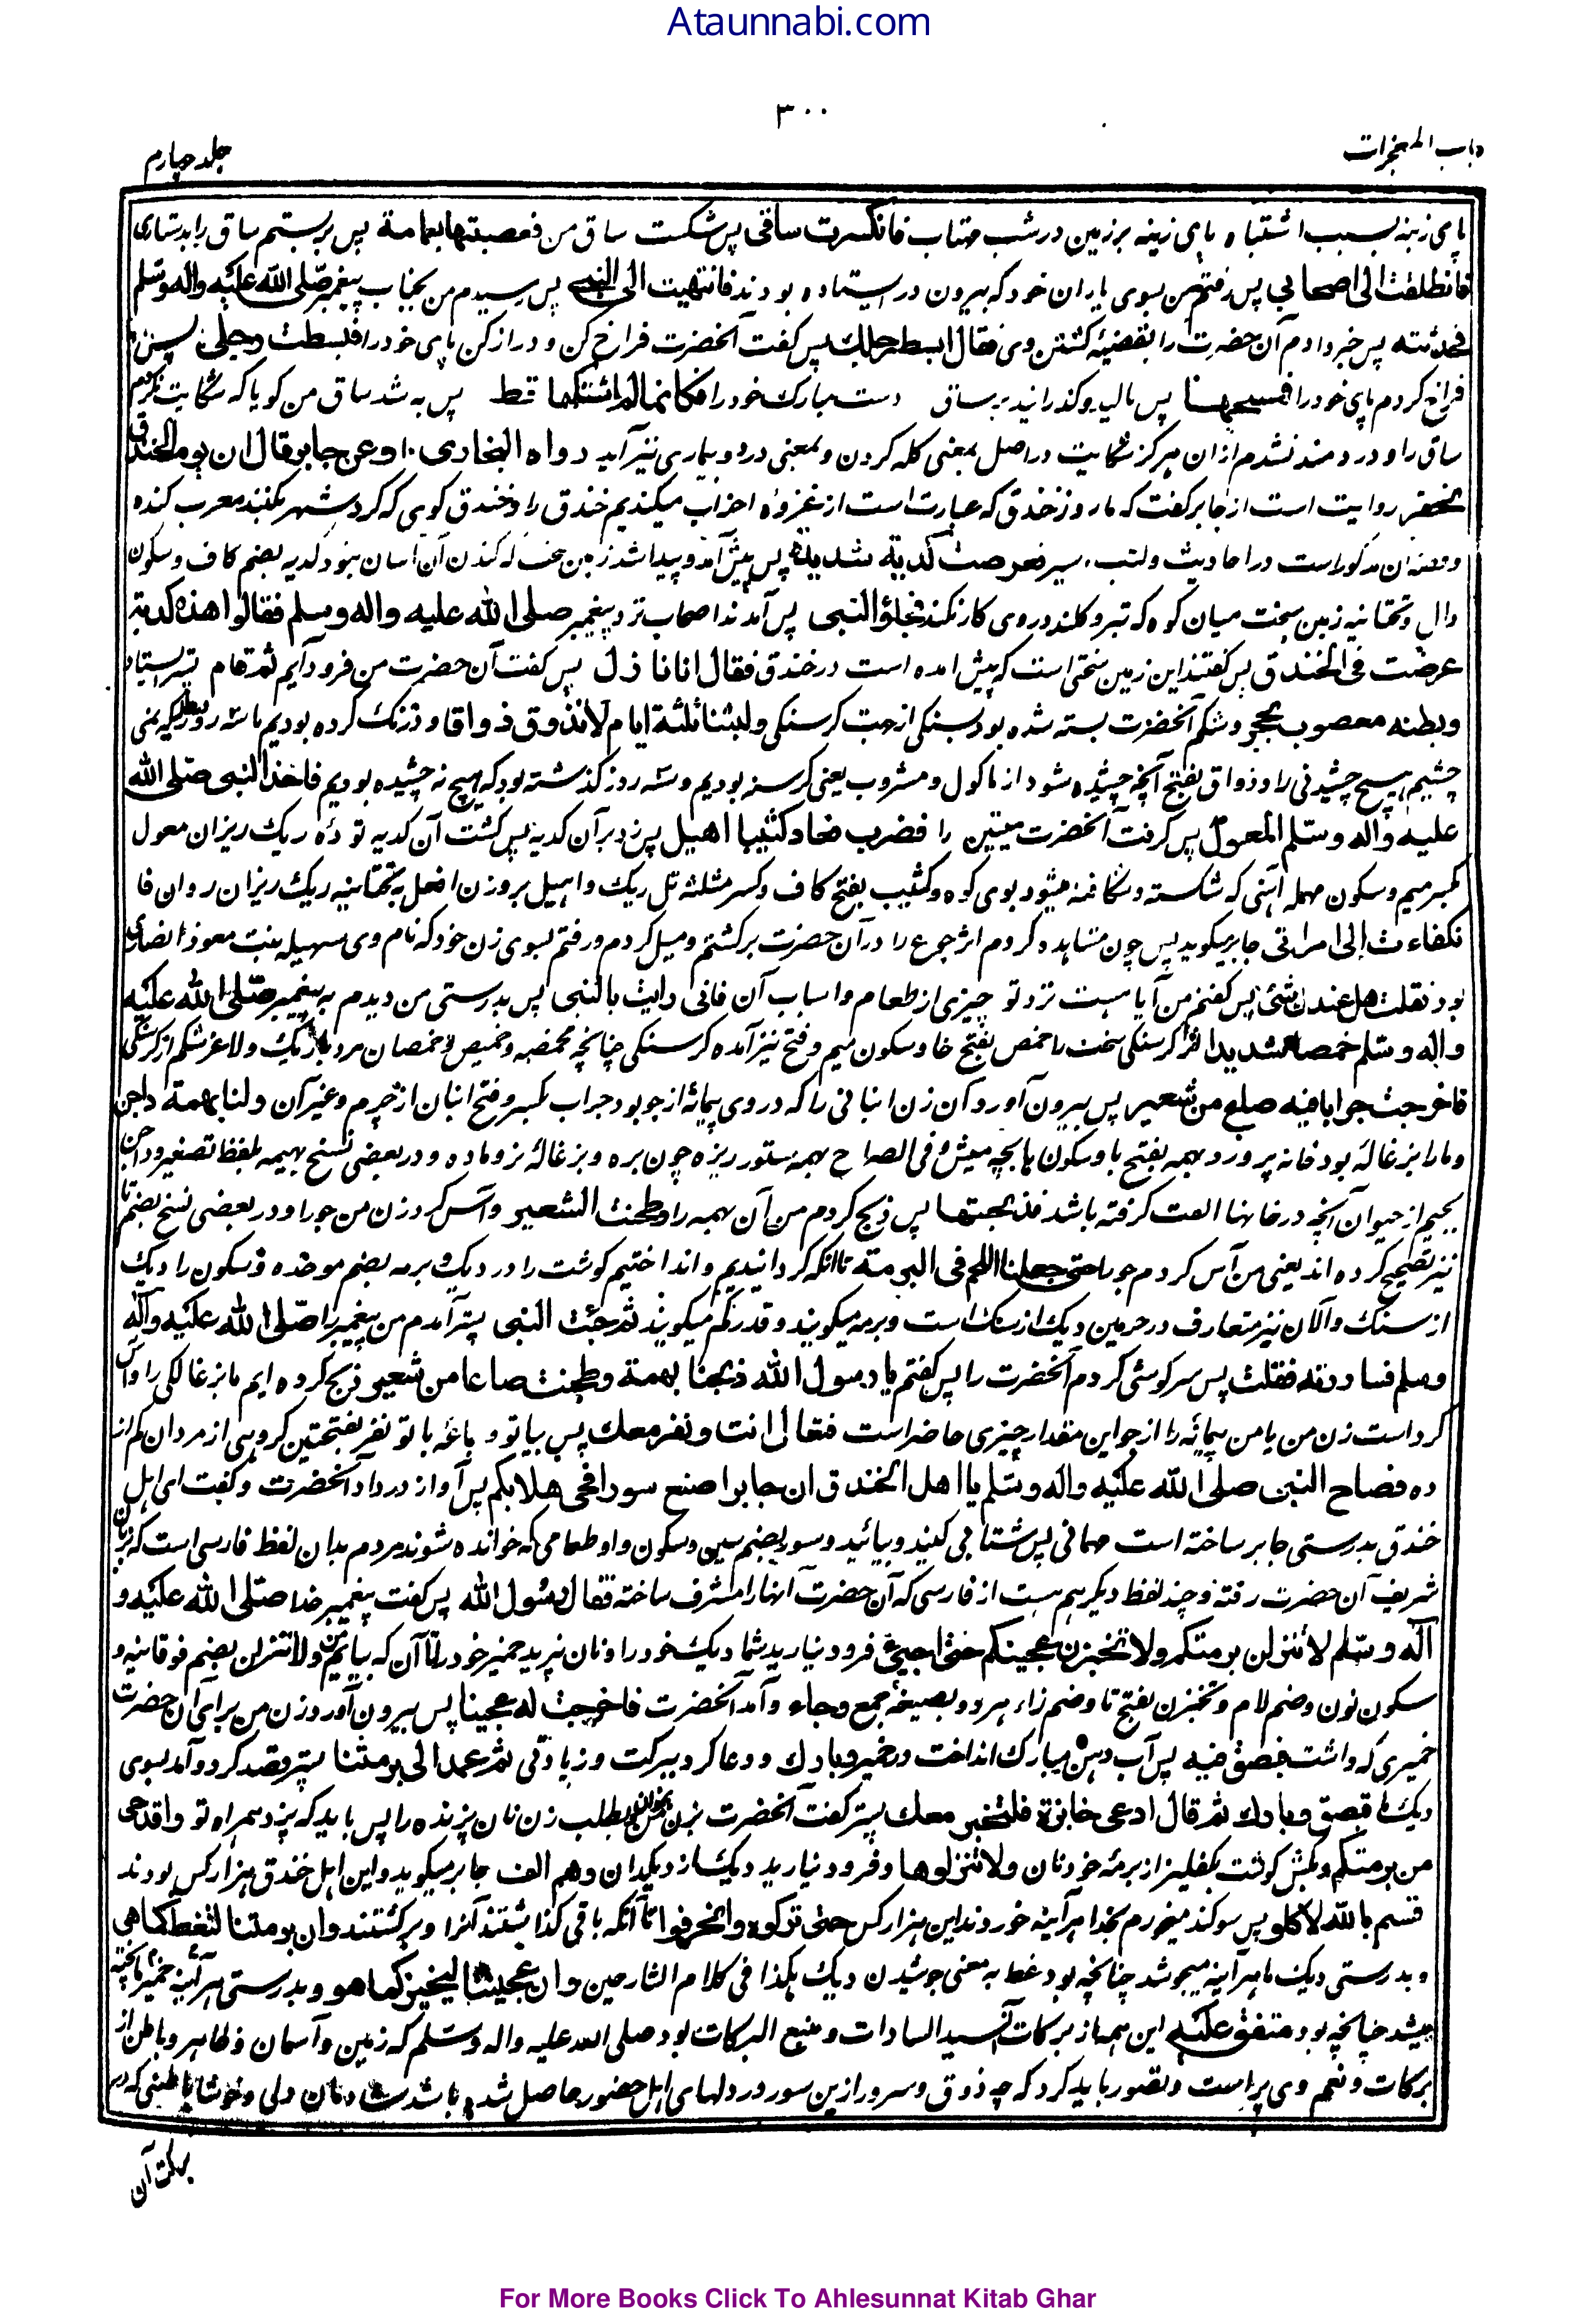 Ataunnabi.com
۳۰۰
باب المعجزات
جلد چهارم
پای زینه بسبب اشتباه پای زینه بر زمین در شب مهتاب فانکسرت ساقی پس شکست ساق من فعصبتها بعمامة پس بر بستم ساق را بدستاری
فانطلقت الی اصحابی پس رفتم من بسوی یاران خود که بیرون در ایستاده بودند فانتهیت الی النبی پس رسیدم من بجناب پیغمبر صلی الله علیه واله وسلم
فحدثته پس خبر دادم آن حضرت را بقضیه کشتن وی فقال ابسط رجلك پس گفت آنحضرت فراخ کن و دراز کن پای خود را فبسطت رجلی پس
فراخ کردم پای خود را فمسحها پس مالید و گذرانید بر ساق دست مبارك خود را فکانما لم اشتکها قط پس به شد ساق من گویا که شکایت نکردم
ساق را و دردمند نشدم از ان هرگز شکایت در اصل بمعنی گله کردن و بمعنی درد و بیماری نیز آید رواه البخاری ۱۰ وعن جابر قال ان یوم الخندق
نحفر روایت است از جابر گفت که ما روز خندق که عبارت است از غزوهٔ احزاب میکندیم خندق را و خندق گوی که گرد شهر بکنند معرب کنده
و قصهٔ آن مذکور است در احادیث و کتب سیر فعرضت کدیة شدیدة پس پیش آمد و پیدا شد زمین سخت که کندن آن آسان نبود کدیه بضم کاف و سکون
دال و تحتانیه زمین سخت میان کوه که تبر و کلند در وی کار نکند فجاؤ النبی پس آمدند اصحاب نزد پیغمبر صلی الله علیه واله وسلم فقالوا هذه کدیة
عرضت فی الخندق پس گفتند این زمین سختی است که پیش آمده است در خندق فقال انا نازل پس گفت آن حضرت من فرود آیم ثم قام پستر ایستاد
وبطنه معصوب بحجر و شکم آنحضرت بسته شده بود بسنگی از جهت گرسنگی ولبثنا ثلثة ایام لا نذوق ذواقا و درنگ کرده بودیم ما سه روز که نمی
چشیم هیچ چشیدنی را و ذواق بفتح آنچه چشیده شود از ماکول و مشروب یعنی گرسنه بودیم و سه روز گذشته بود که هیچ نه چشیده بودیم فاخذ النبی صلی الله
علیه واله وسلم المعول پس گرفت آنحضرت میتین را فضرب فعاد کثیبا اهیل پس زد بر آن کدیه پس گشت آن کدیه تودهٔ ریك ریزان معول
بکسر میم و سکون مهمله آهنی که شکسته و شکافته میشود بوی کوه و کثیب بفتح کاف و کسر مثلثه تل ریك و اهیل بروزن افعل به تحتانیه ریك ریزان روان فا
نکفاءت الی امراتی جابر میگوید پس چون مشاهده کردم اثر جوع را در آن حضرت برگشتم و میل کردم و رفتم بسوی زن خود که نام وی سهیله بنت معوذ انصاری
بود فقلت هل عندك شیء پس گفتم من آیا هست نزد تو چیزی از طعام و اسباب آن فانی رایت بالنبی پس بدرستی من دیدم به پیغمبر صلی الله علیه
واله وسلم خمصا شدیدا اثر گرسنگی سخت را خمص بفتح خا و سکون میم و فتح نیز آمده گرسنگی چنانچه مخمصه و خمیص و خمصان مرد باریك و لاغر شکم از گرسنگی
فاخرجت جرابا فیه صاع من شعیر پس بیرون آورد آن زن انبانی را که در وی پیمانهٔ از جو بود جراب بکسر و فتح انبان از چرم و غیر آن ولنا بهمة داجن
و ما را بزغالهٔ بود خانه پرورد و بهمه بفتح با و سکون ها بچهٔ میش و فی الصراح بهمه ستور ریزه چون بره و بزغاله نر و ماده و در بعضی نسخ بهیمه بلفظ تصغیر و داجن
بجیم از حیوان آنچه در خانها الفت گرفته باشد فذبحتها پس ذبح کردم من آن بهمه را وطحنت الشعیر و آس کرد زن من جو را و در بعضی نسخ بضم تا
نیز تصحیح کرده اند یعنی من آس کردم جو را حتی جعلنا اللحم فی البرمة تا آنکه گردانیدیم و انداختیم گوشت را در دیك و برمه بضم موحده و سکون را دیك
از سنگ و الان نیز متعارف در حرمین دیك از سنگ است و برمه میگویند و قدر هم میگویند ثم جئت النبی پستر آمدم من پیغمبر را صلی الله علیه واله
وسلم فساررته فقلت پس سرگوشی کردم آنحضرت را پس گفتم یا رسول الله ذبحنا بهمة وطحنت صاعا من شعیر ذبح کرده ایم ما بزغالکی را و آس
کرد است زن من یا من پیمانه را از جو این مقدار چیزی حاضر است فتعال انت ونفر معك پس بیا تو و جماعه با تو نفر بفتحتین گروهی از مردان کم از
ده فصاح النبی صلی الله علیه واله وسلم یا اهل الخندق ان جابرا صنع سورا فحی هلا بکم پس آواز در داد آنحضرت و گفت ای اهل
خندق بدرستی جابر ساخته است مهمانی پس شتابی کنید و بیائید و سور بضم سین و سکون واو طعامی که خوانده شوند مردم بدان لفظ فارسی است که بزبان
شریف آن حضرت رفته و چند لفظ دیگر هم هست از فارسی که آن حضرت آنها را مشرف ساخته فقال رسول الله پس گفت پیغمبر خدا صلی الله علیه و
آله وسلم لا تنزلن برمتکم ولا تخبزن عجینکم حتی اجیئ فرود نیارید شما دیك خود را و نان نپزید خمیر خود را تا آن که بیایم من ولا تنزلن بضم فوقانیه و
سکون نون و ضم لام و تخبزن بفتح تا و ضم زاء هر دو بصیغهٔ جمع وجاء و آمد آنحضرت فاخرجت له عجینا پس بیرون آورد زن من برای آن حضرت
خمیری که داشت فبصق فیه پس آب دهن مبارك انداخت در خمیر وبارك و دعا کرد ببرکت و زیادتی ثم عمد الی برمتنا پستر قصد کرد و آمد بسوی
دیك ما فبصق وبارك ثم قال ادعی خابزة فلتخبز معك پستر گفت آنحضرت بزن من بطلب زن نان پزنده را پس باید که بپزد همراه تو واقدحی
من برمتکم و بکش گوشت بکفلیز از برمهٔ خود نان ولا تنزلوها و فرود نیارید دیك از دیکدان وهم الف جابر میگوید و این اهل خندق هزار کس بودند
قسم بالله لاکلو پس سوگند میخورم بخدا هر آینه خوردند این هزار کس حتی ترکوه وانحرفوا تا آنکه باقی گذاشتند آنرا و برگشتند وان برمتنا لتغط کماهی
و بدرستی دیك ما هر آینه میجوشد چنانچه بود غط به معنی جوشیدن دیك هکذا فی کلام الشارحین وان عجیننا لیخبز کما هو و بدرستی هر آئینه خمیر ما پخته
میشد چنانچه بود متفق علیه این همه از برکات آن سید السادات و منبع البرکات بود صلی الله علیه واله وسلم که زمین و آسمان و ظاهر و باطن از
برکات و نعم وی پر است و تصور باید کرد که چه ذوق و سرور ازین سور در دلهای اهل حضور حاصل شده باشد
برکت آن
For More Books Click To Ahlesunnat Kitab Ghar